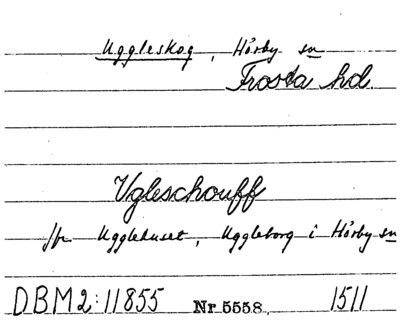 Uggleskog, Hörby sn
Frosta hd.
Vgleschouff
jfr Ugglehuset, Uggleborg i Hörby sn
DBM2:11855 Nr 5558. 1511